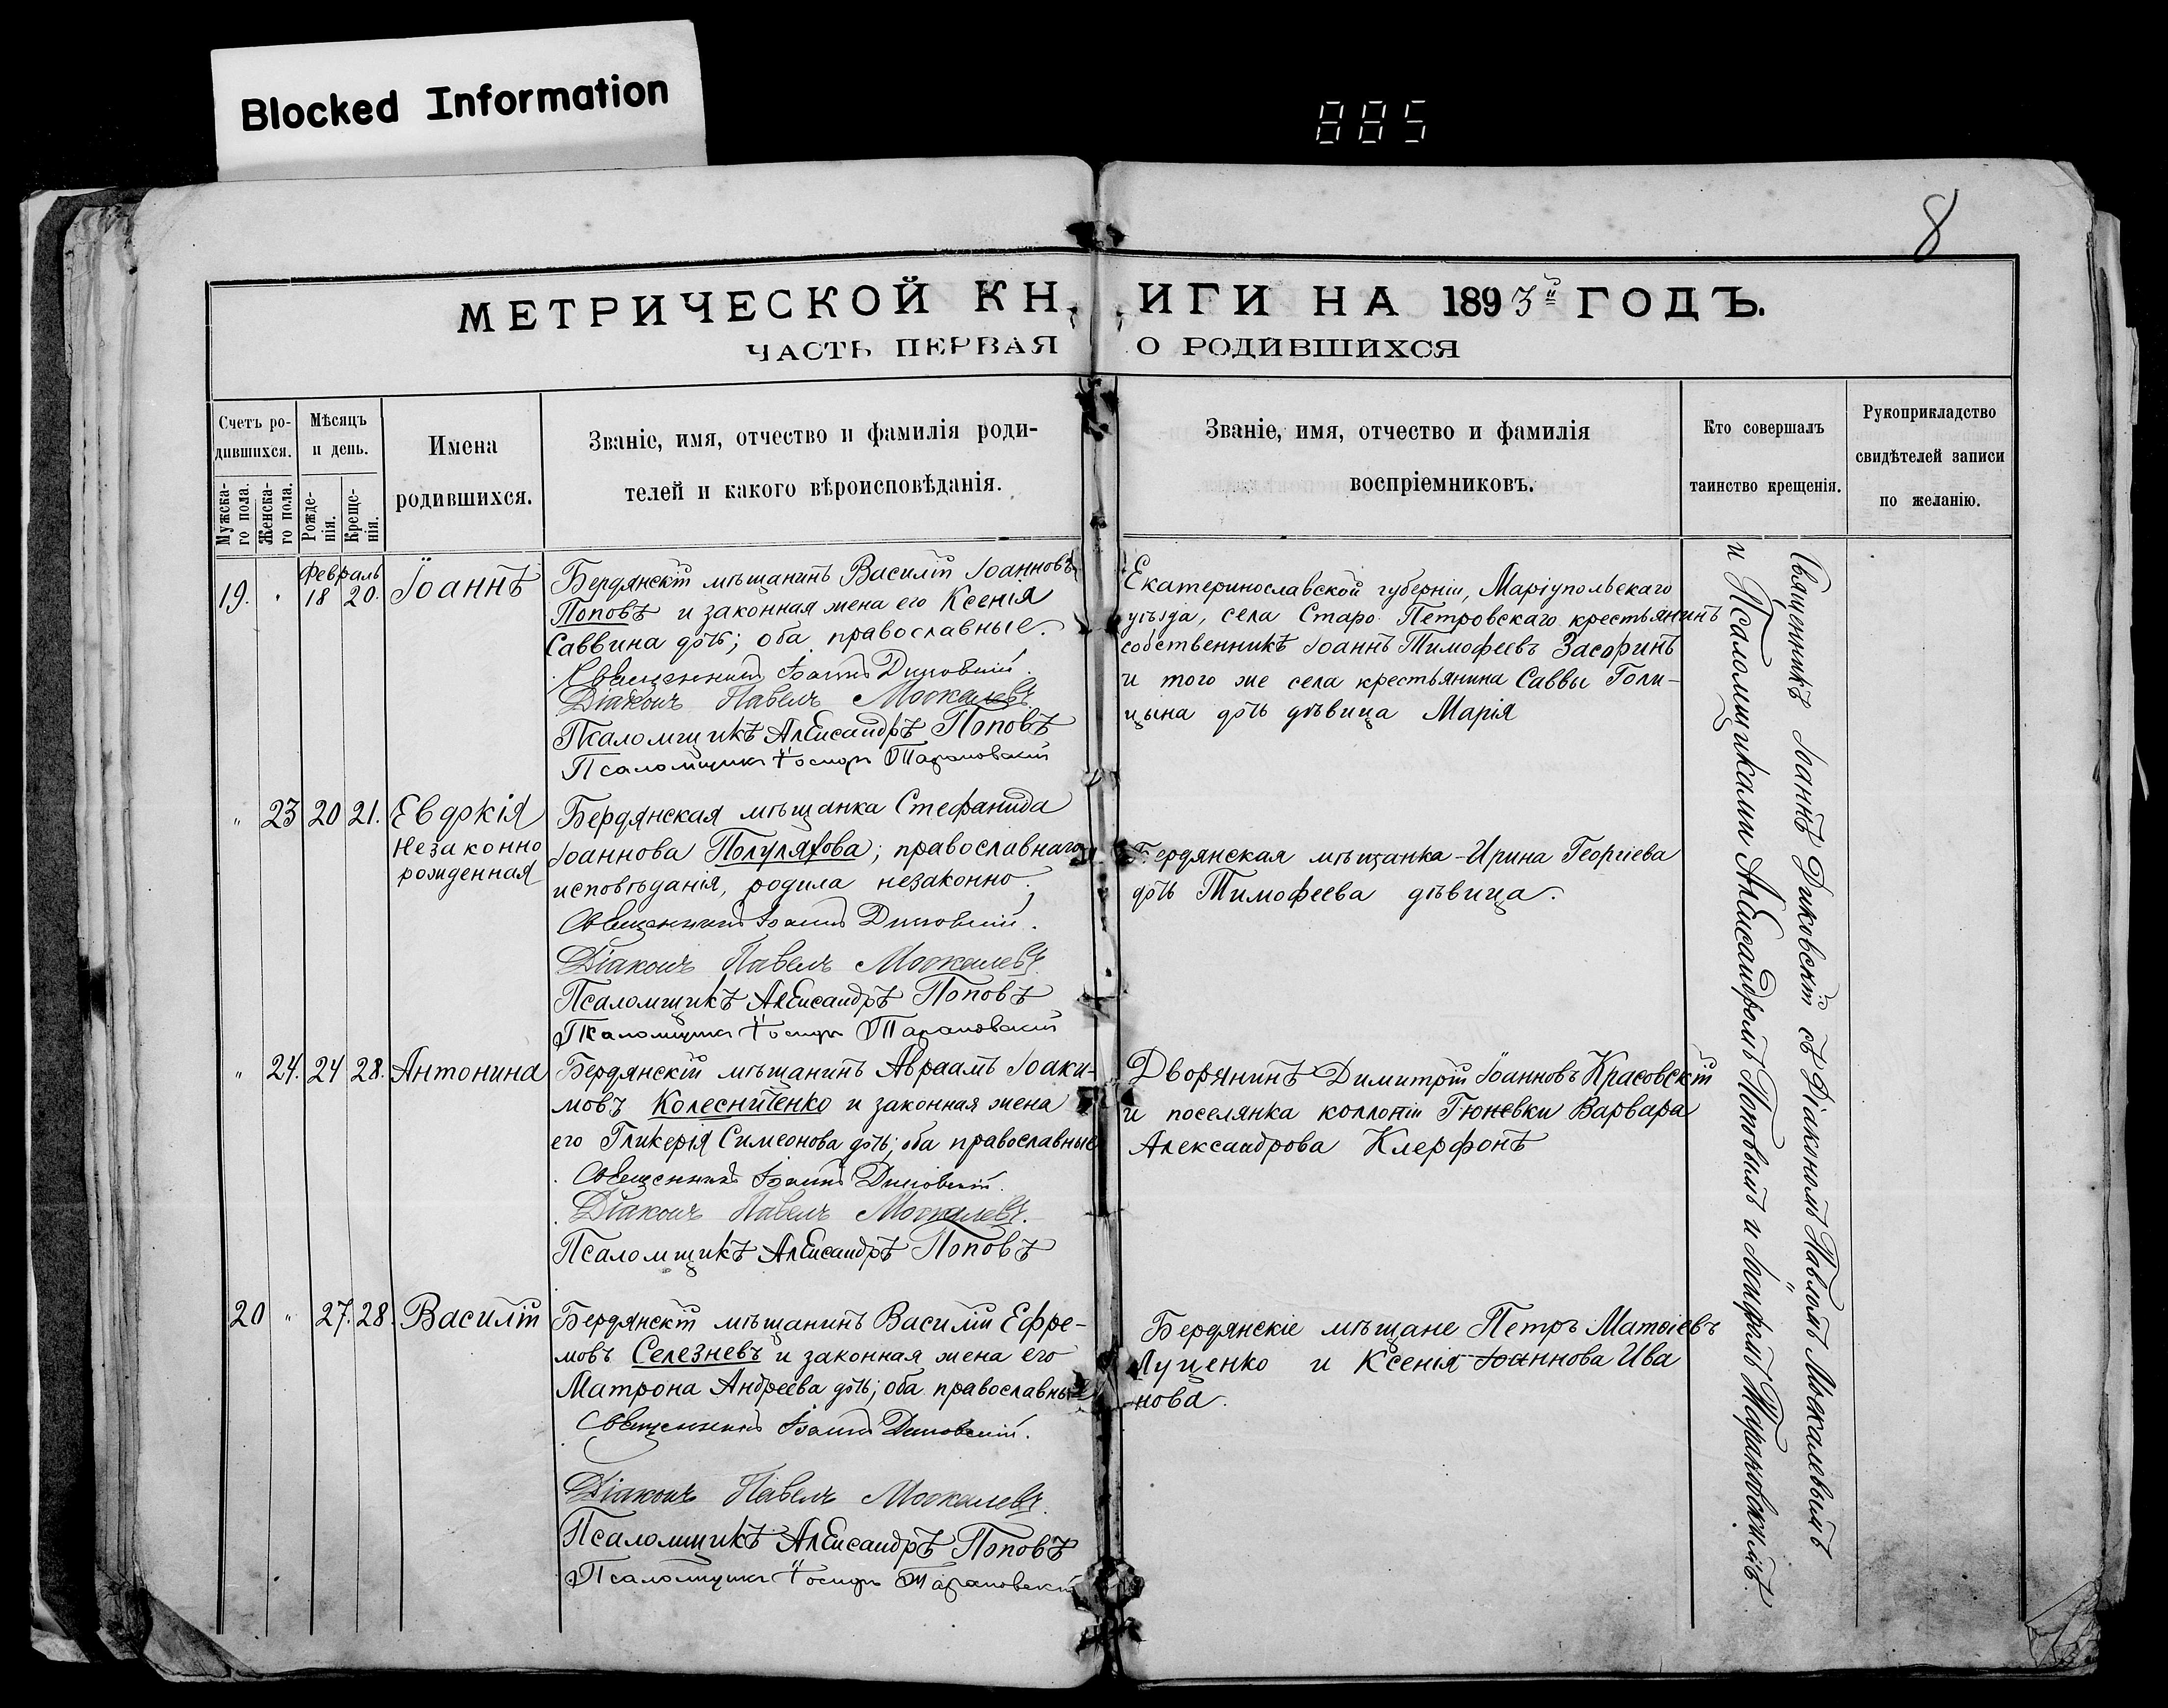 Blocked Information
885
8
МЕТРИЧЕСКОЙ КН
ИГИ НА 1893й ГОДЪ.
ЧАСТЬ ПЕРВАЯ
О РОДИВШИХСЯ
Счетъ ро-
дившихся.
Мужска-
го пола.
Женска-
го пола.
Мѣсяцъ
и день.
Рожде-
нія.
Креще-
нія.
Имена
родившихся.
Званіе, имя, отчество и фамилія роди-
телей и какого вѣроисповѣданія.
Званіе, имя, отчество и фамилія
воспріемниковъ.
Кто совершалъ
таинство крещенія.
Рукоприкладство
свидѣтелей записи
по желанію.
Февраль
19. " 18 20. Іоаннъ
Бердянскій мѣщанинъ Василій Іоанновъ
Поповъ и законная жена его Ксенія
Саввина дочь; оба православные.
Священникъ Іоаннъ Диковскій.
Діаконъ Павелъ Москалевъ
Псаломщикъ Александръ Поповъ
Псаломщикъ Іосифъ Тарановскій
Екатеринославской губерніи, Маріупольскаго
уѣзда, села Старо Петровскаго крестьянинъ
собственникъ Іоаннъ Тимофеевъ Засоринъ
и того же села крестьянина Саввы Голи-
цына дочь дѣвица Марія
" 23 20 21. Евдокія
Незаконно
рожденная
Бердянская мѣщанка Стефанида
Іоаннова Полуляхова; православнаго
исповѣданія, родила незаконно.
Священникъ Іоаннъ Диковскій.
Діаконъ Павелъ Москалевъ.
Псаломщикъ Александръ Поповъ
Псаломщикъ Іосифъ Тарановскій
Бердянская мѣщанка Ирина Георгіева
дочь Тимофеева дѣвица.
" 24. 24 28. Антонина
Бердянскій мѣщанинъ Авраамъ Іоаки-
мовъ Колесниченко и законная жена
его Гликерія Симеонова дочь; оба православные
Священникъ Іоаннъ Диковскій.
Діаконъ Павелъ Москалевъ.
Псаломщикъ Александръ Поповъ
Дворянинъ Димитрій Іоанновъ Красовскій
и поселянка коллоніи Гюневки Варвара
Александрова Клерфонъ
20 " 27. 28. Василій
Бердянскій мѣщанинъ Василій Ефре-
мовъ Селезневъ и законная жена его
Матрона Андреева дочь; оба православные
Священникъ Іоаннъ Диковскій.
Діаконъ Павелъ Москалевъ.
Псаломщикъ Александръ Поповъ
Псаломщикъ Іосифъ Тарановскій
Бердянскіе мѣщане Петръ Матѳіевъ
Луценко и Ксенія Іоаннова Ива
нова.
Священникъ Іоаннъ Диковскій съ Діакономъ Павломъ Москалевымъ
и Псаломщиками Александромъ Поповымъ и Іосифомъ Тарановскимъ.